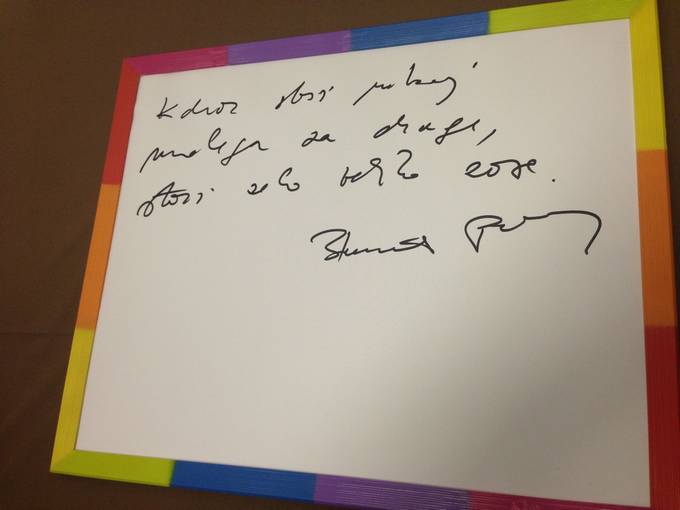 Kdor stori nekaj
malega za druge,
stori zelo veliko zase.